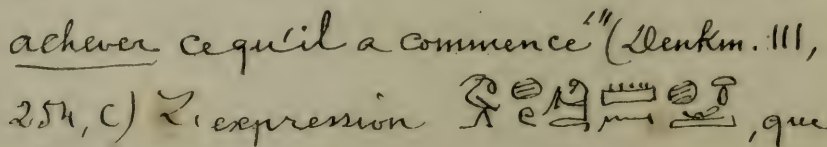 achever ce qu'il a commence'" (Denkm. III,
254, c) L'expression , que